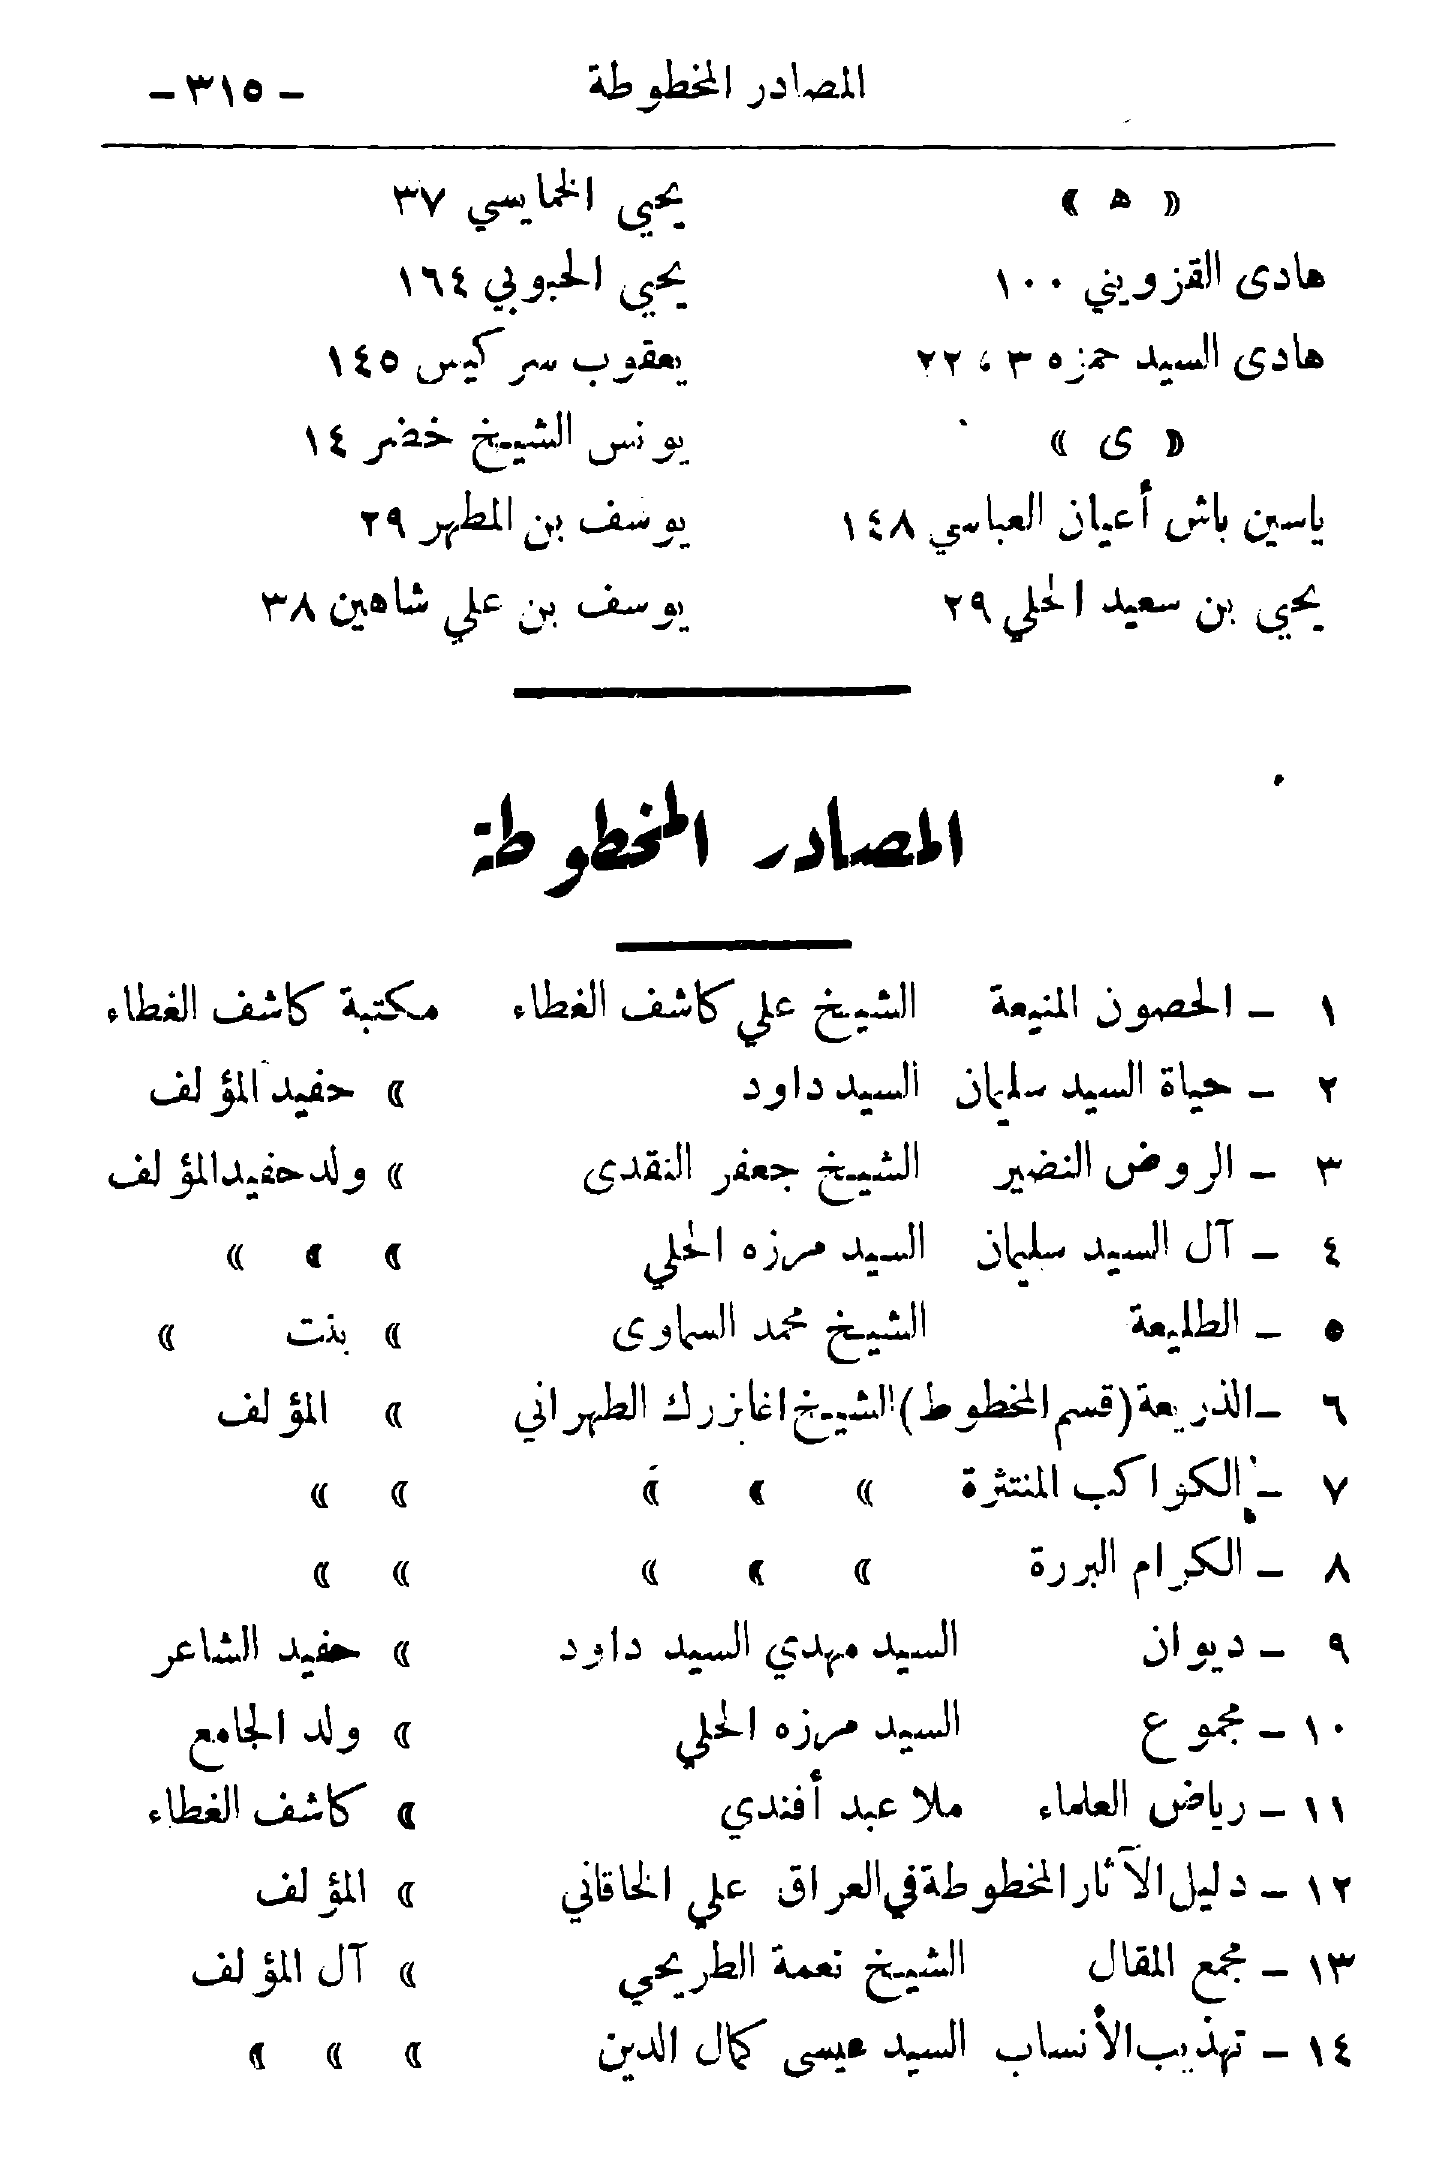 المصادر المخطوطة - ٣١٥ -
« ه »
هادى القزويني ١٠٠
هادى السيد حمزه ٣ ، ٢٢
« ى »
ياسين باش أعيان العباسي ١٤٨
يحيي بن سعيد الحلي ٢٩
يحيي الخمايسي ٣٧
يحيي الحبوبي ١٦٤
يعقوب سركيس ١٤٥
يونس الشيخ خضر ١٤
يوسف بن المطهر ٢٩
يوسف بن علي شاهين ٣٨
المصادر المخطوطة
١ – الحصون المنيعة الشيخ علي كاشف الغطاء مكتبة كاشف الغطاء
٢ – حياة السيد سليمان السيد داود » حفيد المؤلف
٣ – الروض النضير الشيخ جعفر النقدى » ولد حفيد المؤلف
٤ – آل السيد سليمان السيد مرزه الحلي » » »
٥ – الطليعة الشيخ محمد السماوى » بنت »
٦ – الذريعة (قسم المخطوط) الشيخ اغابزرك الطهراني » المؤلف
٧ – الكواكب المنتثرة » » » » »
٨ – الكرام البررة » » » » »
٩ – ديوان السيد مهدي السيد داود » حفيد الشاعر
١٠ – مجموع السيد مرزه الحلي » ولد الجامع
١١ – رياض العلماء ملا عبد أفندي » كاشف الغطاء
١٢ – دليل الآثار المخطوطة في العراق علي الخاقاني » المؤلف
١٣ – مجمع المقال الشيخ نعمة الطريحي » آل المؤلف
١٤ – تهذيب الأنساب السيد عيسى كمال الدين » » »